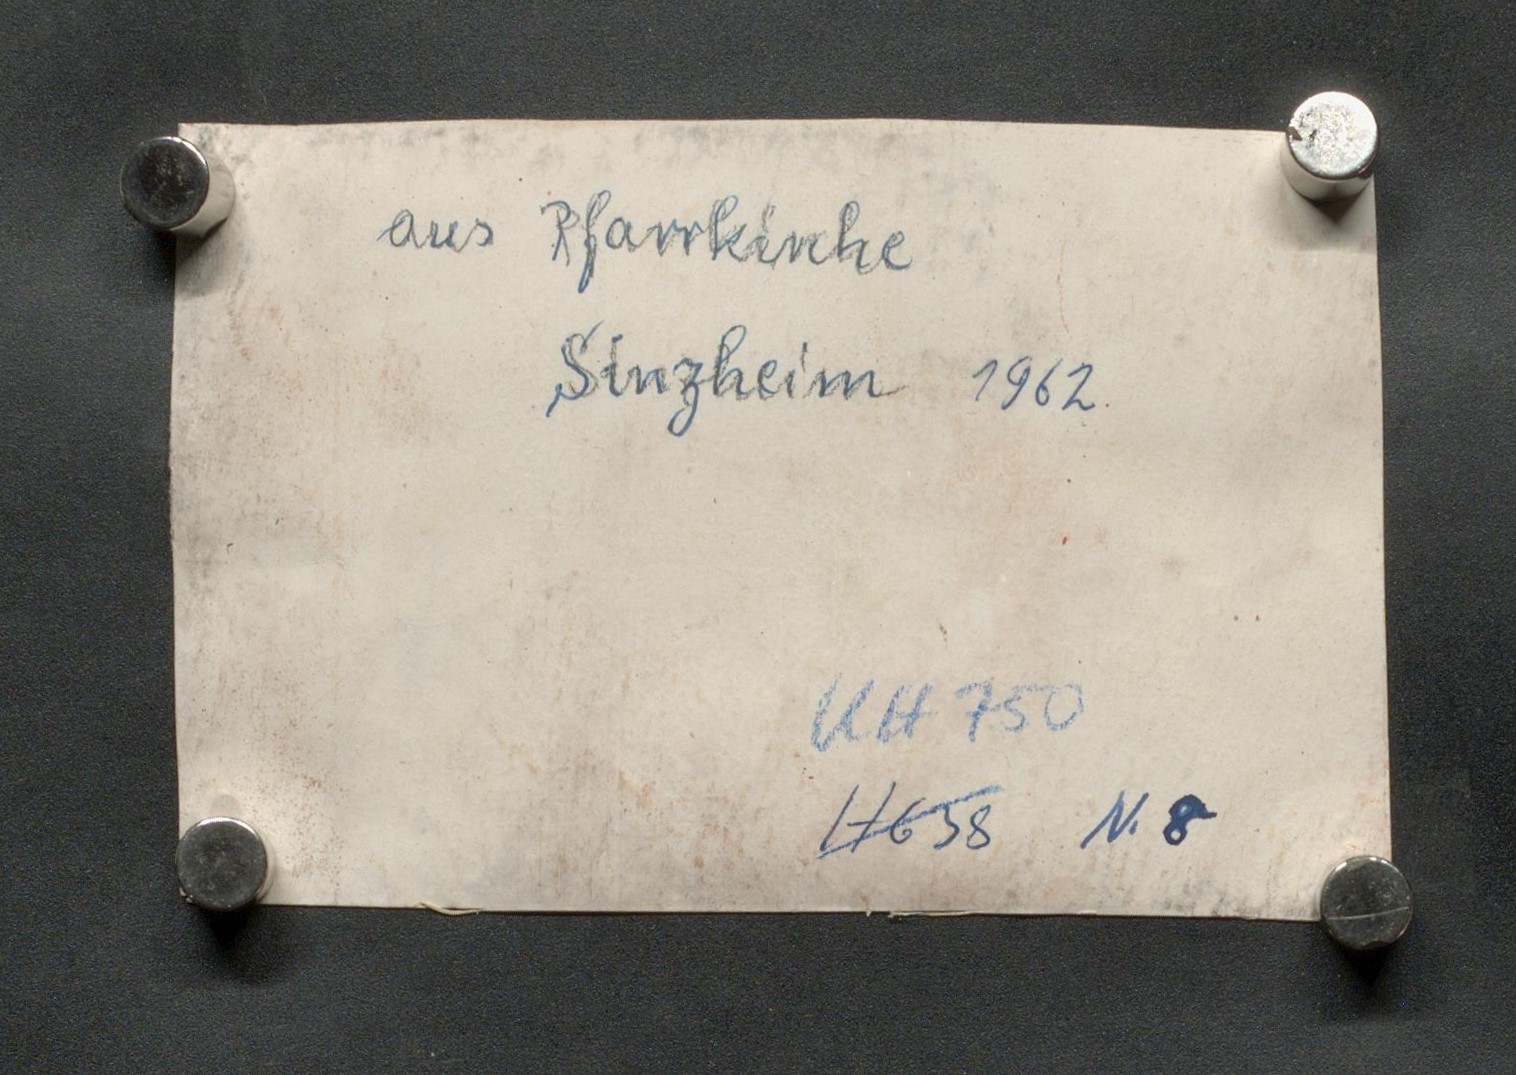 aus Pfarrkirche
Sinzheim 1962
UH 750
H658 N. 8